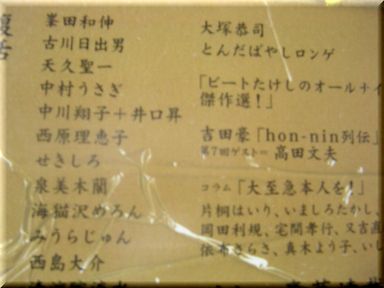 復活
峯田和伸
古川日出男
天久聖一
中村うさぎ
中川翔子＋井口昇
西原理恵子
せきしろ
泉美木蘭
海猫沢めろん
みうらじゅん
西島大介
大塚恭司
とんだばやしロンゲ
「ビートたけしのオールナイ
傑作選！」
吉田豪「hon-nin列伝」
第7回ゲスト＝高田文夫
コラム「大至急本人を！」
片桐はいり、いましろたかし、
岡田利規、宅間孝行、又吉直
依布さらさ、真木よう子、いし